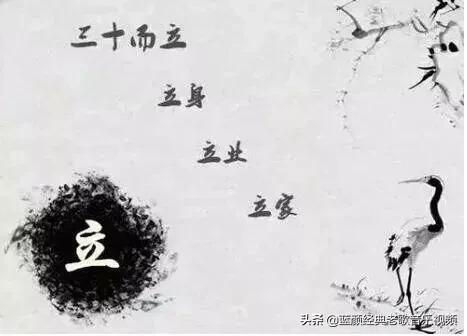 三十而立
立身
立业
立家
立
头条 @蓝颜经典老歌音乐视频